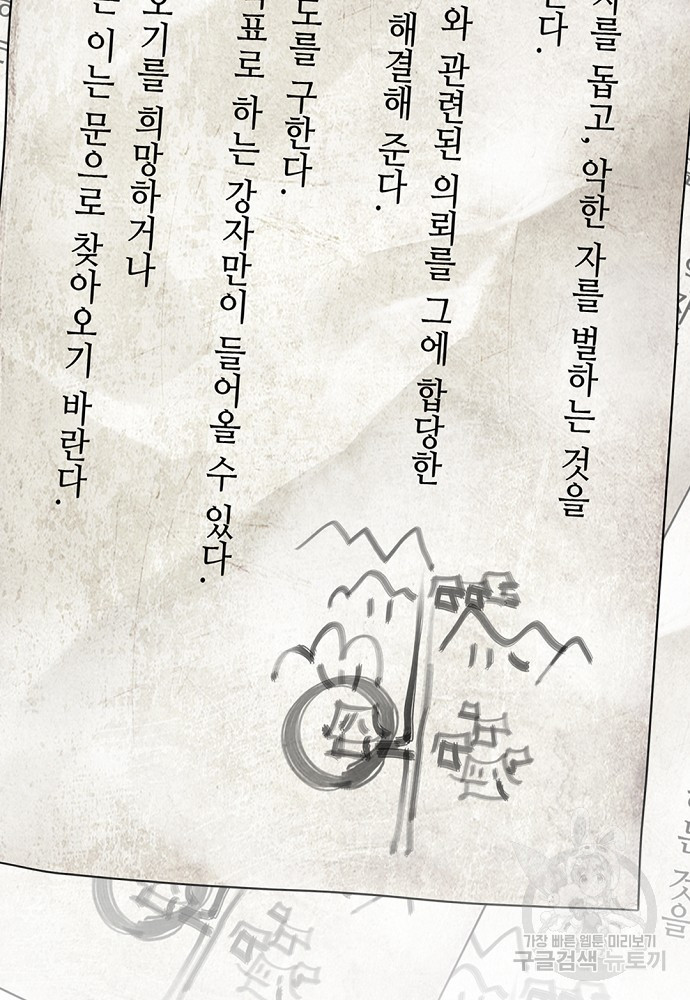 자를 돕고, 악한 자를 벌하는 것을
다.
와 관련된 의뢰를 그에 합당한
해결해 준다.
도를 구한다.
표로 하는 강자만이 들어올 수 있다.
오기를 희망하거나
이는 문으로 찾아오기 바란다.
것을
가장 빠른 웹툰 미리보기
구글검색 뉴토끼